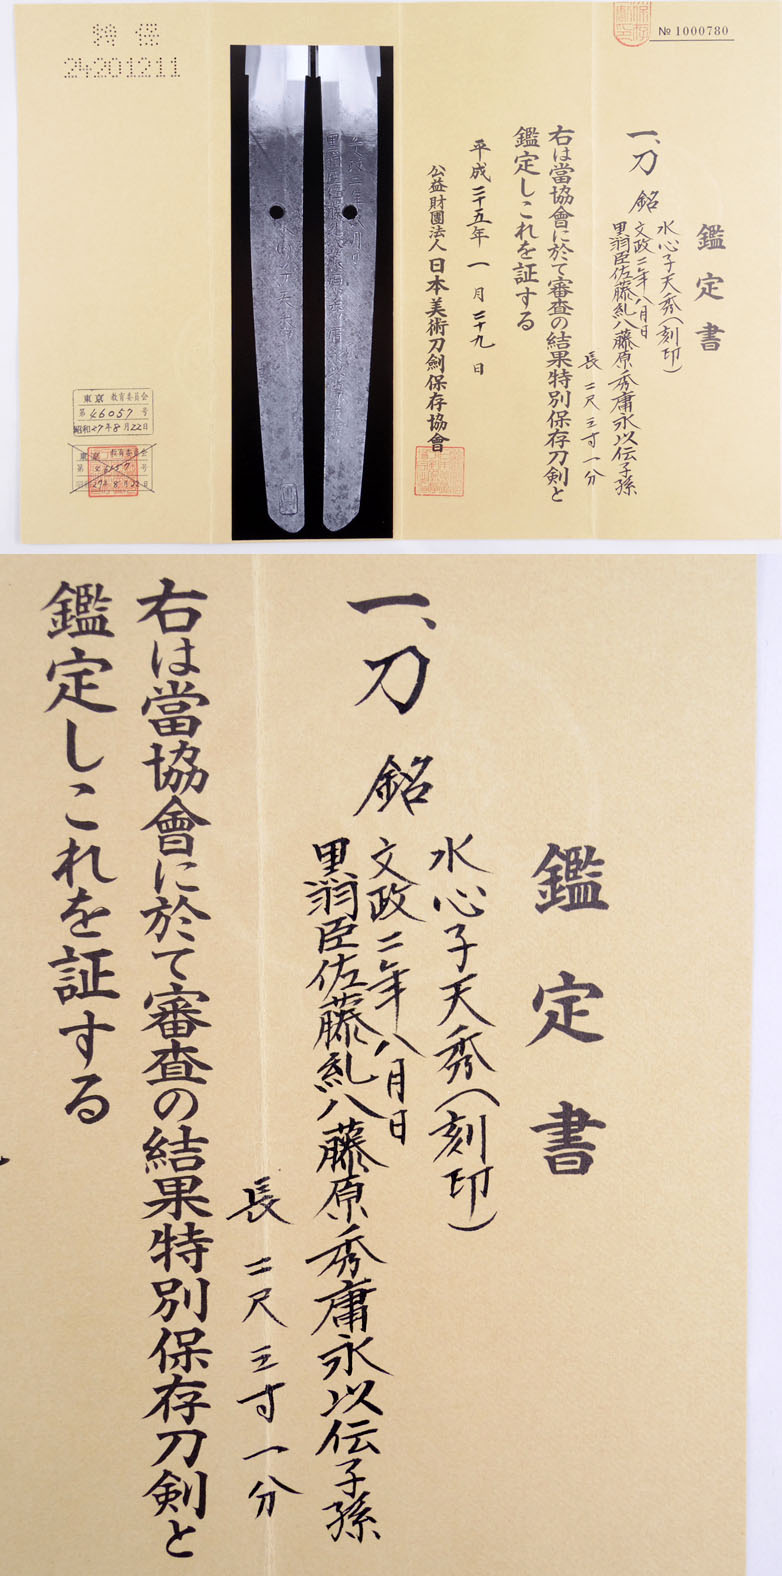 № 1000780
鑑定書
一、刀 銘
水心子天秀（刻印）
文政二年八月日
里翁臣佐藤糺八藤原秀庸永以伝子孫
長 二尺三寸一分
右は當協會に於て審査の結果特別保存刀剣と
鑑定しこれを証する
平成二十五年一月二十九日
公益財團法人日本美術刀劍保存協會
特保
24201211
東京 教育委員会
第46057号
昭和27年8月22日
東京 教育委員会
第 号
27年8月22日
鑑定書
一、刀 銘
水心子天秀（刻印）
文政二年八月日
里翁臣佐藤糺八藤原秀庸永以伝子孫
長 二尺三寸一分
右は當協會に於て審査の結果特別保存刀剣と
鑑定しこれを証する